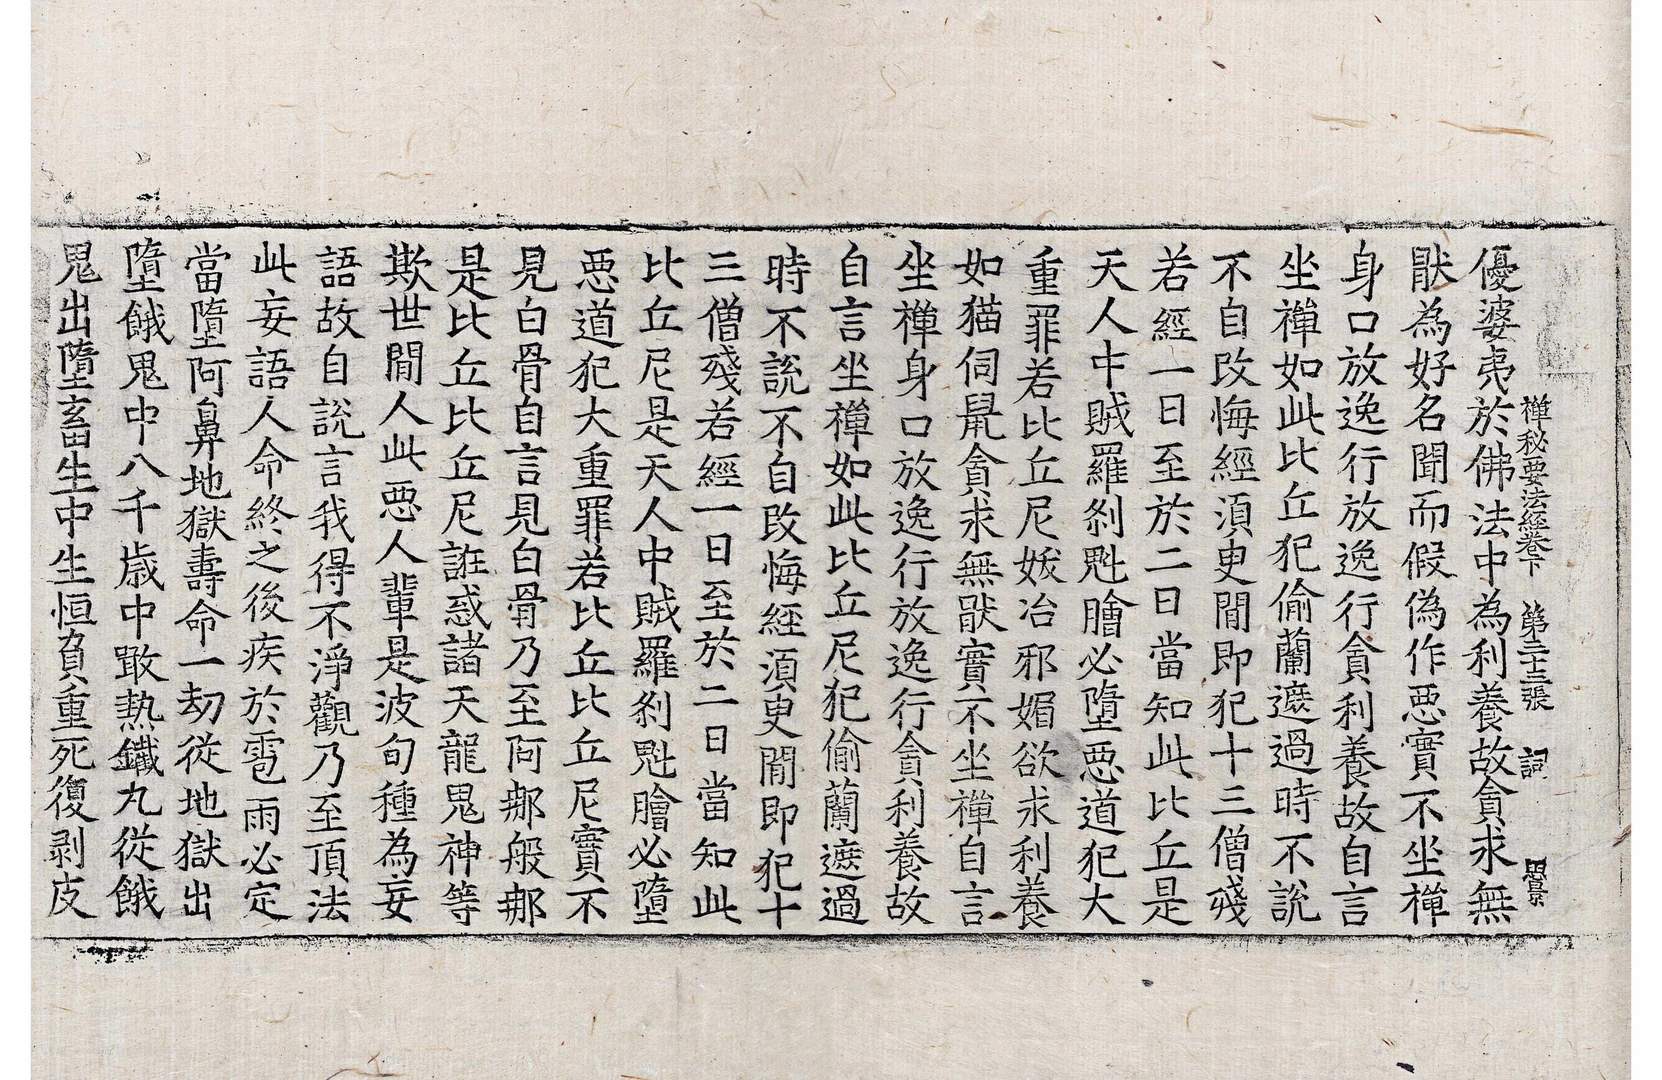 禪秘要法經卷下　第二十三張　詞
優婆夷於佛法中為利養故貪求無
猒為好名聞而假偽作惡實不坐禪
身口放逸行放逸行貪利養故自言
坐禪如此比丘犯偷蘭遮過時不說
不自改悔經須臾閒即犯十三僧殘
若經一日至於二日當知此比丘是
天人中賊羅剎魁膾必墮惡道犯大
重罪若比丘尼妖冶邪媚欲求利養
如猫伺鼠貪求無猒實不坐禪自言
坐禪身口放逸行放逸行貪利養故
自言坐禪如此比丘尼犯偷蘭遮過
時不說不自改悔經須臾閒即犯十
三僧殘若經一日至於二日當知此
比丘尼是天人中賊羅剎魁膾必墮
惡道犯大重罪若比丘比丘尼實不
見白骨自言見白骨乃至阿那般那
是比丘比丘尼誑惑諸天龍鬼神等
欺世閒人此惡人輩是波旬種為妄
語故自說言我得不淨觀乃至頂法
此妄語人命終之後疾於雹雨必定
當墮阿鼻地獄壽命一劫從地獄出
墮餓鬼中八千歲中噉熱鐵丸從餓
鬼出墮畜生中生恒負重死復剥皮